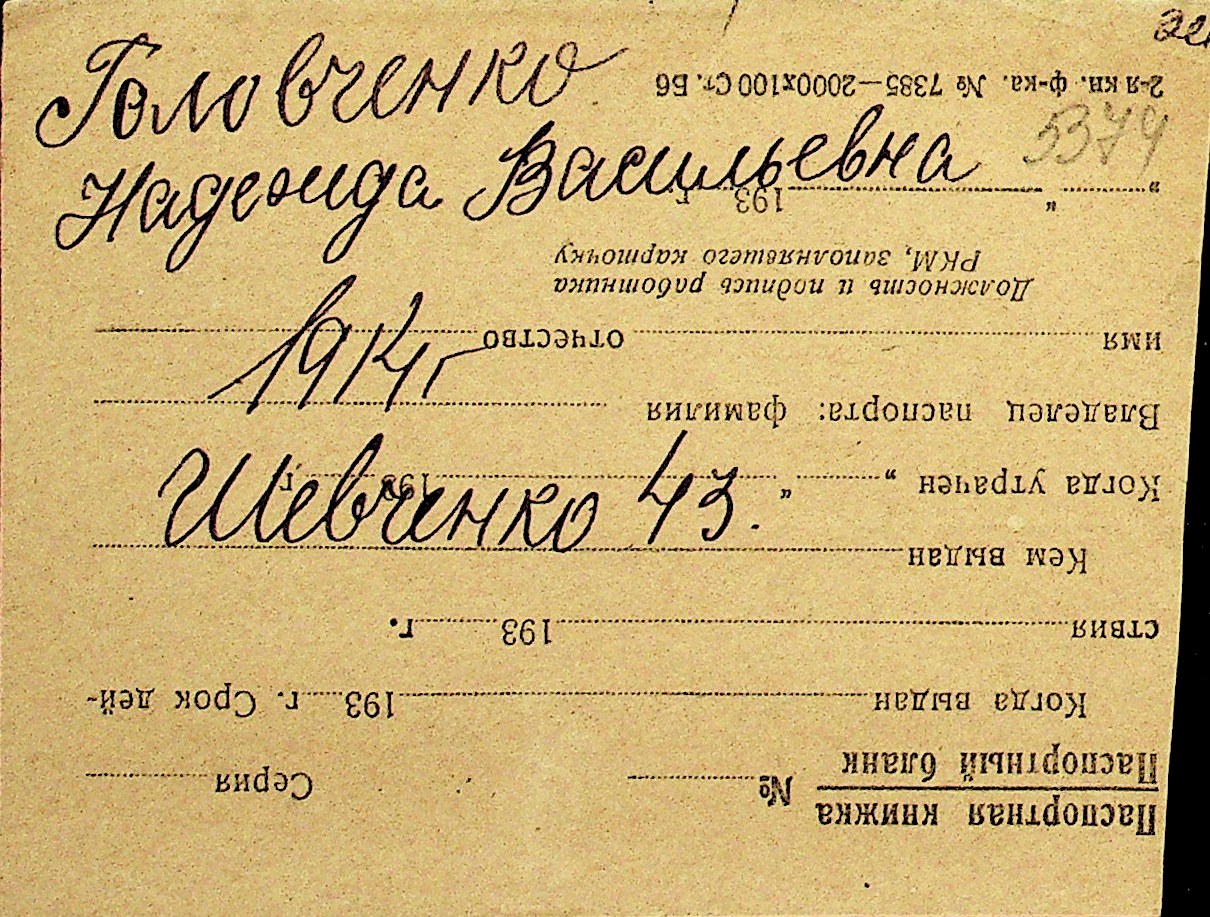 Головченко
Надежда Васильевна
1914 г
Шевченко 43.
5379
Паспортная книжка
Паспортный бланк
№ Серия
Когда выдан 193 г. Срок дей-
ствия 193 г.
Кем выдан
Когда утрачен „ “ 193 г.
Владелец паспорта: фамилия
имя отчество
Должность и подпись работника
РКМ, заполнявшего карточку
„ “ 193 г.
2-я кн. ф-ка. № 7385—2000х100 Ст. Б6